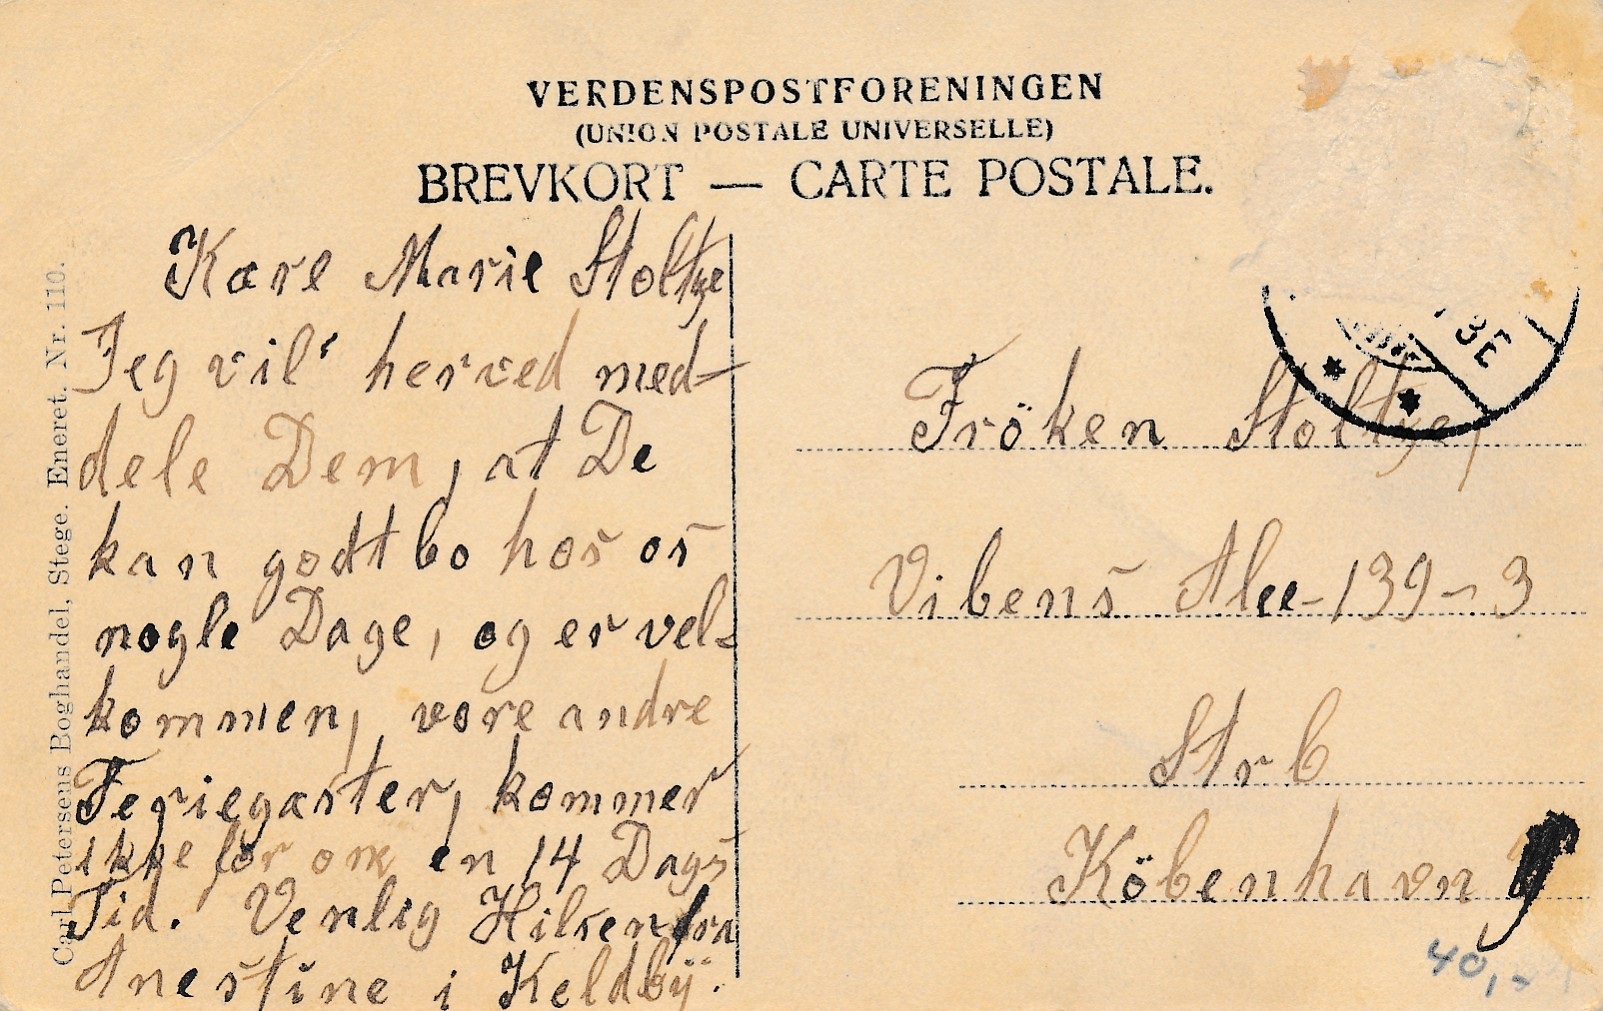 VERDENSPOSTFORENINGEN
(UNION POSTALE UNIVERSELLE)
BREVKORT — CARTE POSTALE.
Carl Petersens Boghandel, Stege. Eneret. Nr. 110.
Kære Marie Stoltze
Jeg vil herved med-
dele Dem, at De
kan godt bo hos os
nogle Dage, og er vel-
kommen, vore andre
Feriegæster, kommer
ikke før om en 14 Dags
Tid. Venlig Hilsen fra
Anestine i Keldbÿ.
Fröken Stoltze,
Vibens Alee - 139 - 3
Strb
Köbenhavn
3E
40,-